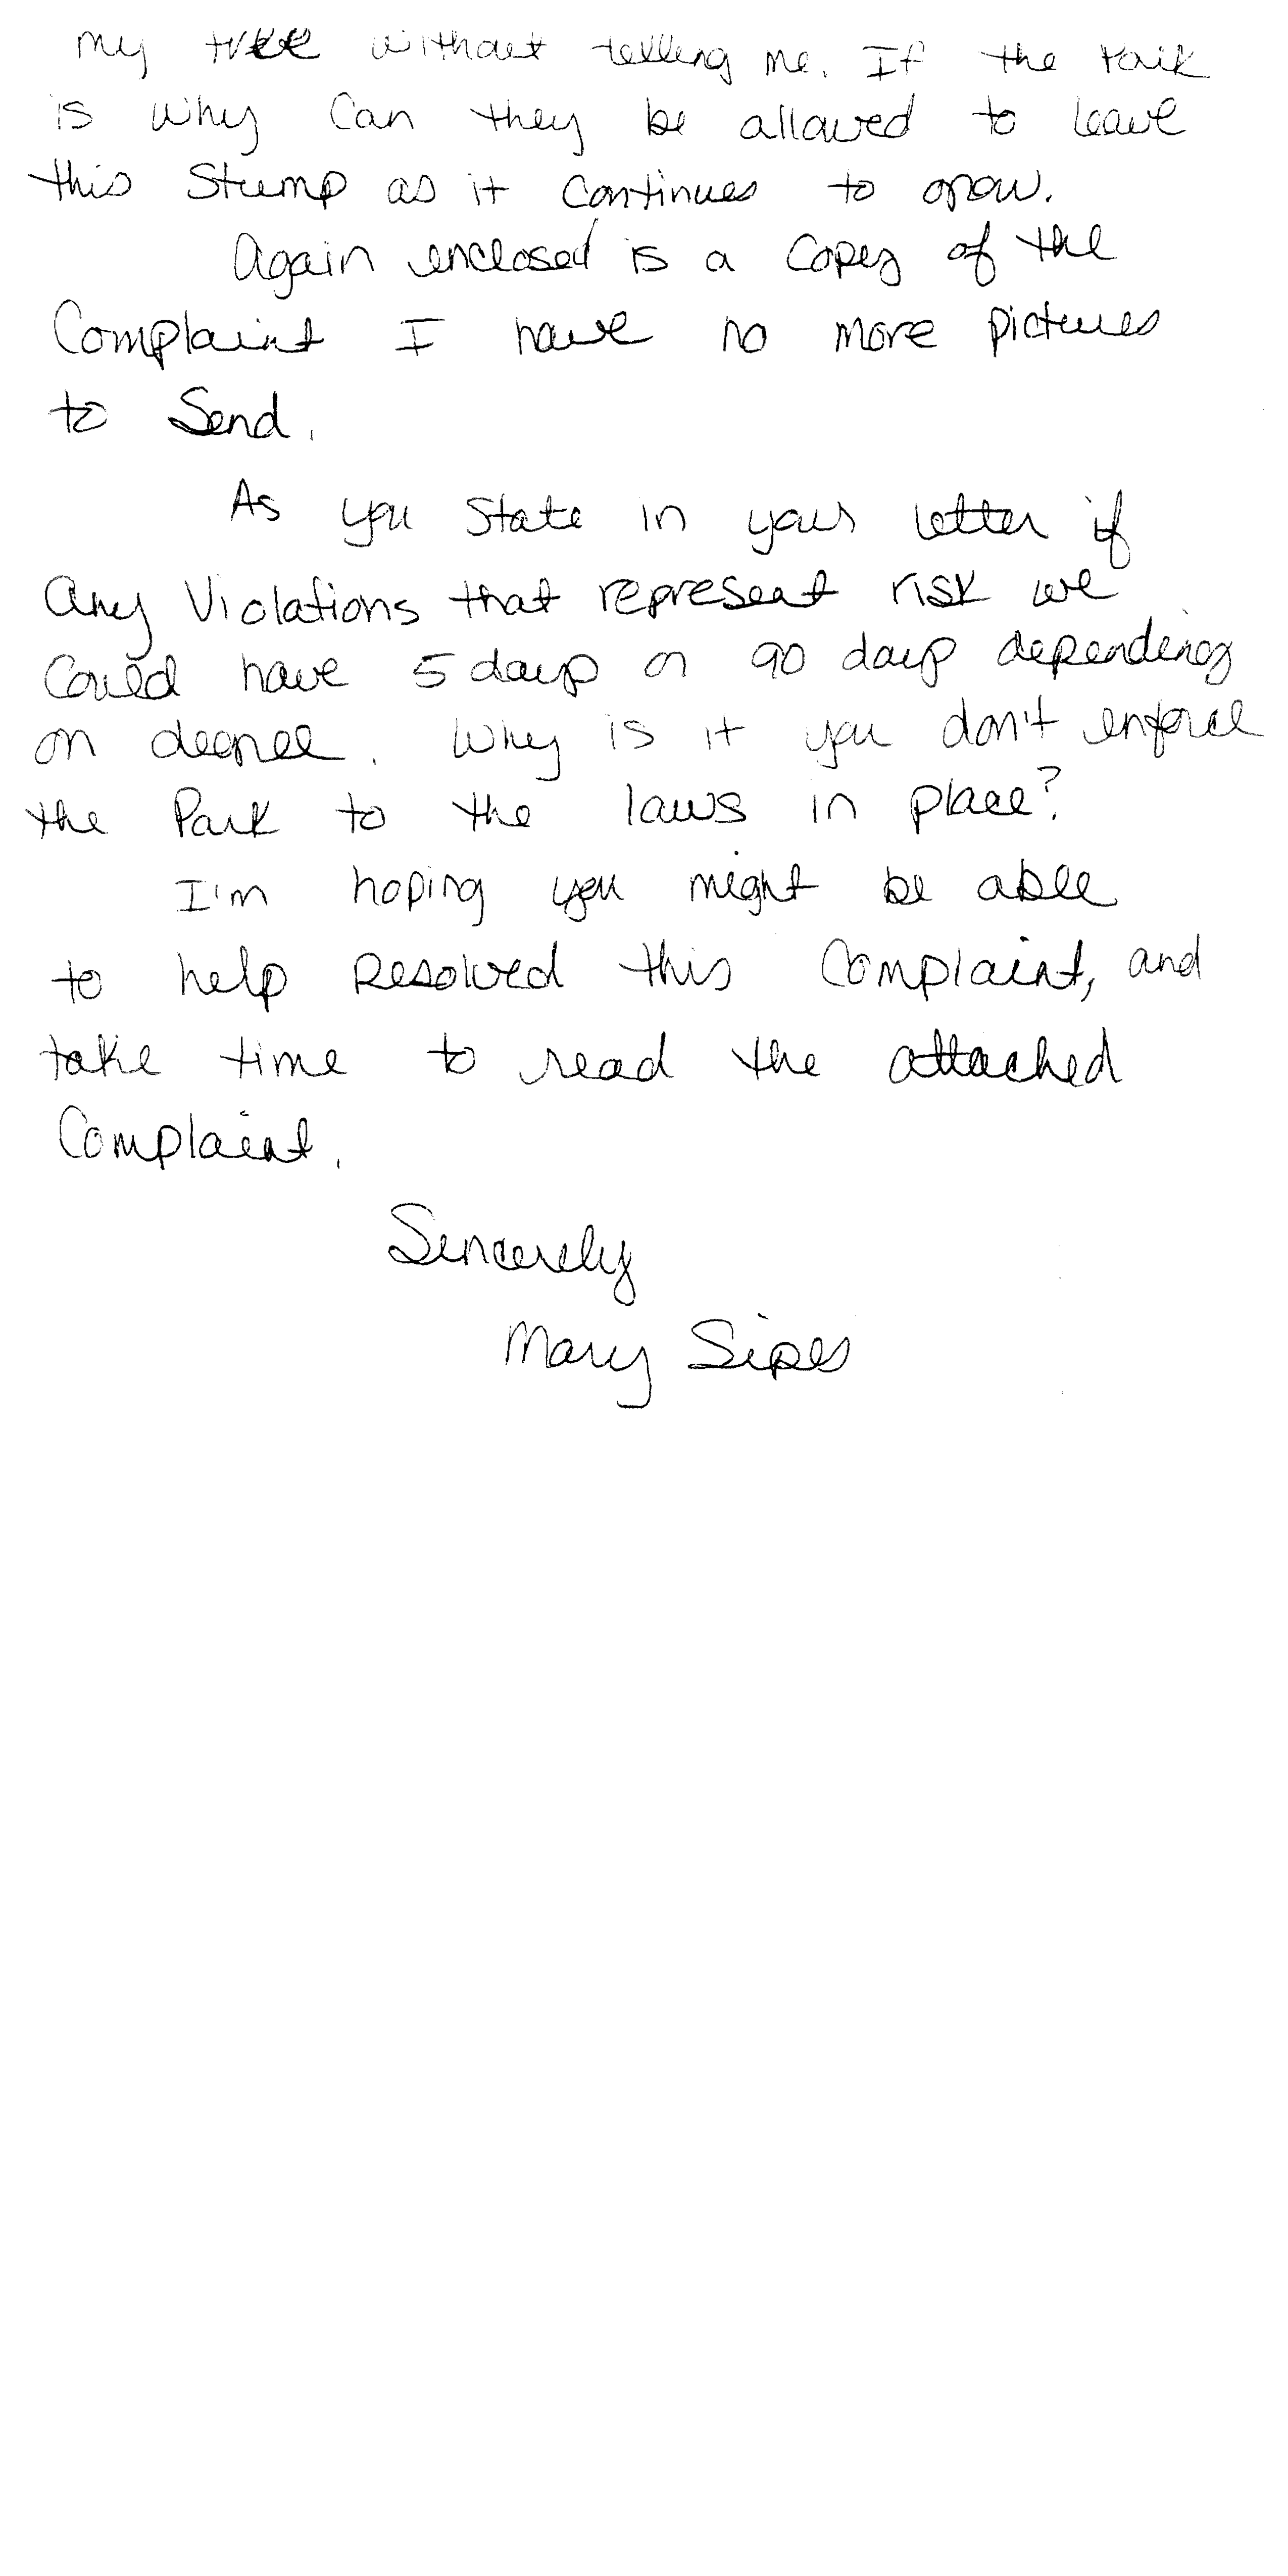 my tree without telling me. If the Park
is why can they be allowed to leave
this Stump as it continues to grow.
Again enclosed is a copy of the
Complaint I have no more pictures
to Send.
As you State in your letter if
any Violations that represent risk we
Could have 5 days or 90 days depending
on degree. Why is it you don't enforce
the Park to the laws in place?
I'm hoping you might be able
to help Resolved this Complaint, and
take time to read the attached
Complaint.
Sincerely
Mary Sipes